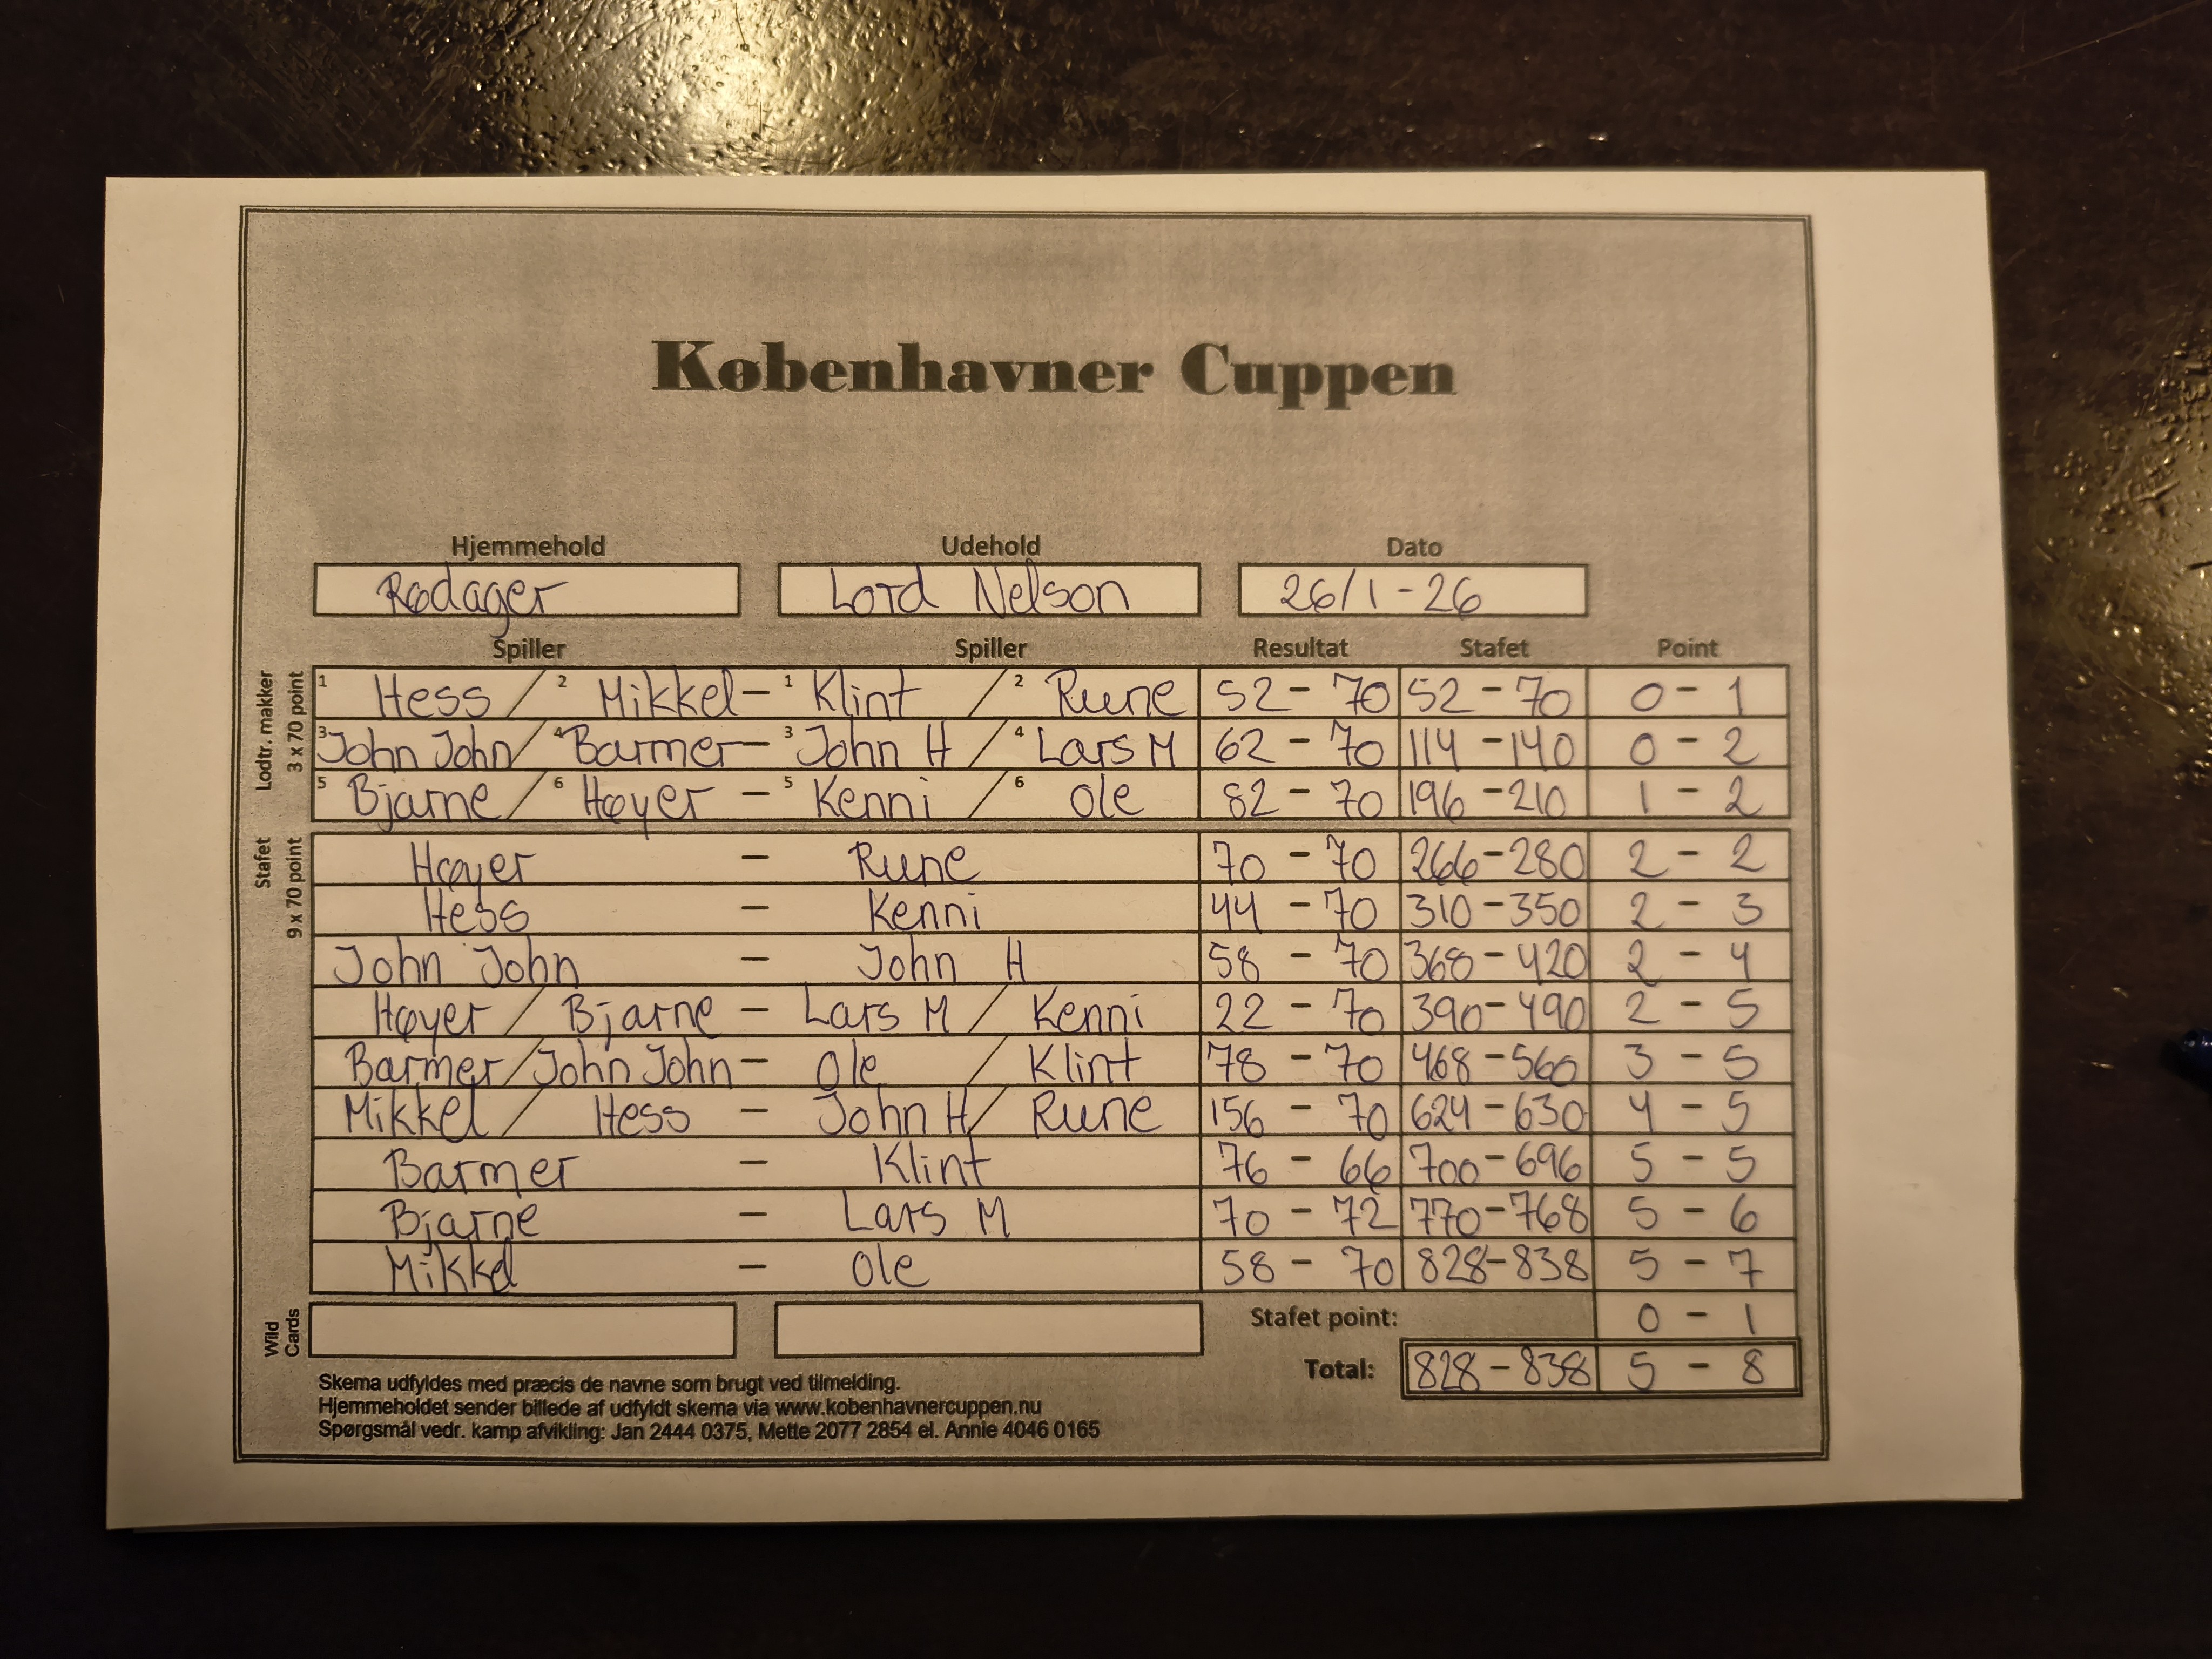 Københavner Cuppen
Hjemmehold Udehold Dato
Rødager Lord Nelson 26/1-26
Spiller Spiller Resultat Stafet Point
Lodtr. makker
3 x 70 point
1 Hess / 2 Mikkel - 1 Klint / 2 Rune 52 - 70 52 - 70 0 - 1
3 John John / 4 Barmer - 3 John H / 4 Lars M 62 - 70 114 - 140 0 - 2
5 Bjarne / 6 Høyer - 5 Kenni / 6 Ole 82 - 70 196 - 210 1 - 2
Stafet
9 x 70 point
Høyer - Rune 70 - 70 266 - 280 2 - 2
Hess - Kenni 44 - 70 310 - 350 2 - 3
John John - John H 58 - 70 368 - 420 2 - 4
Høyer / Bjarne - Lars M / Kenni 22 - 70 390 - 490 2 - 5
Barmer / John John - Ole / Klint 78 - 70 468 - 560 3 - 5
Mikkel / Hess - John H / Rune 156 - 70 624 - 630 4 - 5
Barmer - Klint 76 - 66 700 - 696 5 - 5
Bjarne - Lars M 70 - 72 770 - 768 5 - 6
Mikkel - Ole 58 - 70 828 - 838 5 - 7
Wild Cards
Stafet point: 0 - 1
Total: 828 - 838 5 - 8
Skema udfyldes med præcis de navne som brugt ved tilmelding.
Hjemmeholdet sender billede af udfyldt skema via www.kobenhavnercuppen.nu
Spørgsmål vedr. kamp afvikling: Jan 2444 0375, Mette 2077 2854 el. Annie 4046 0165